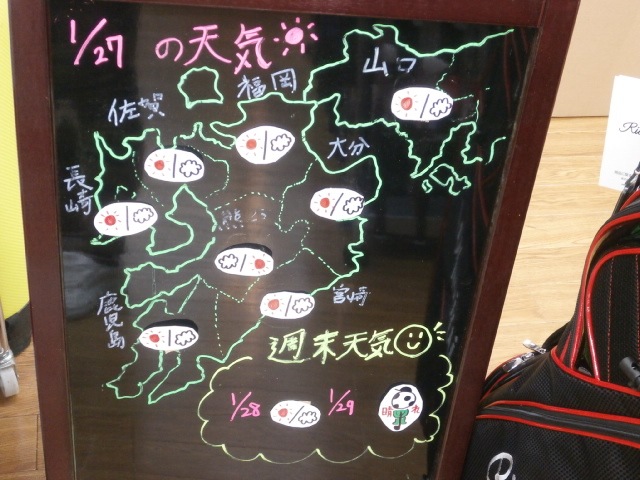 1/27 の天気
山口
福岡
佐賀
大分
長崎
熊本
宮崎
鹿児島
週末天気
1/28 1/29 晴れ